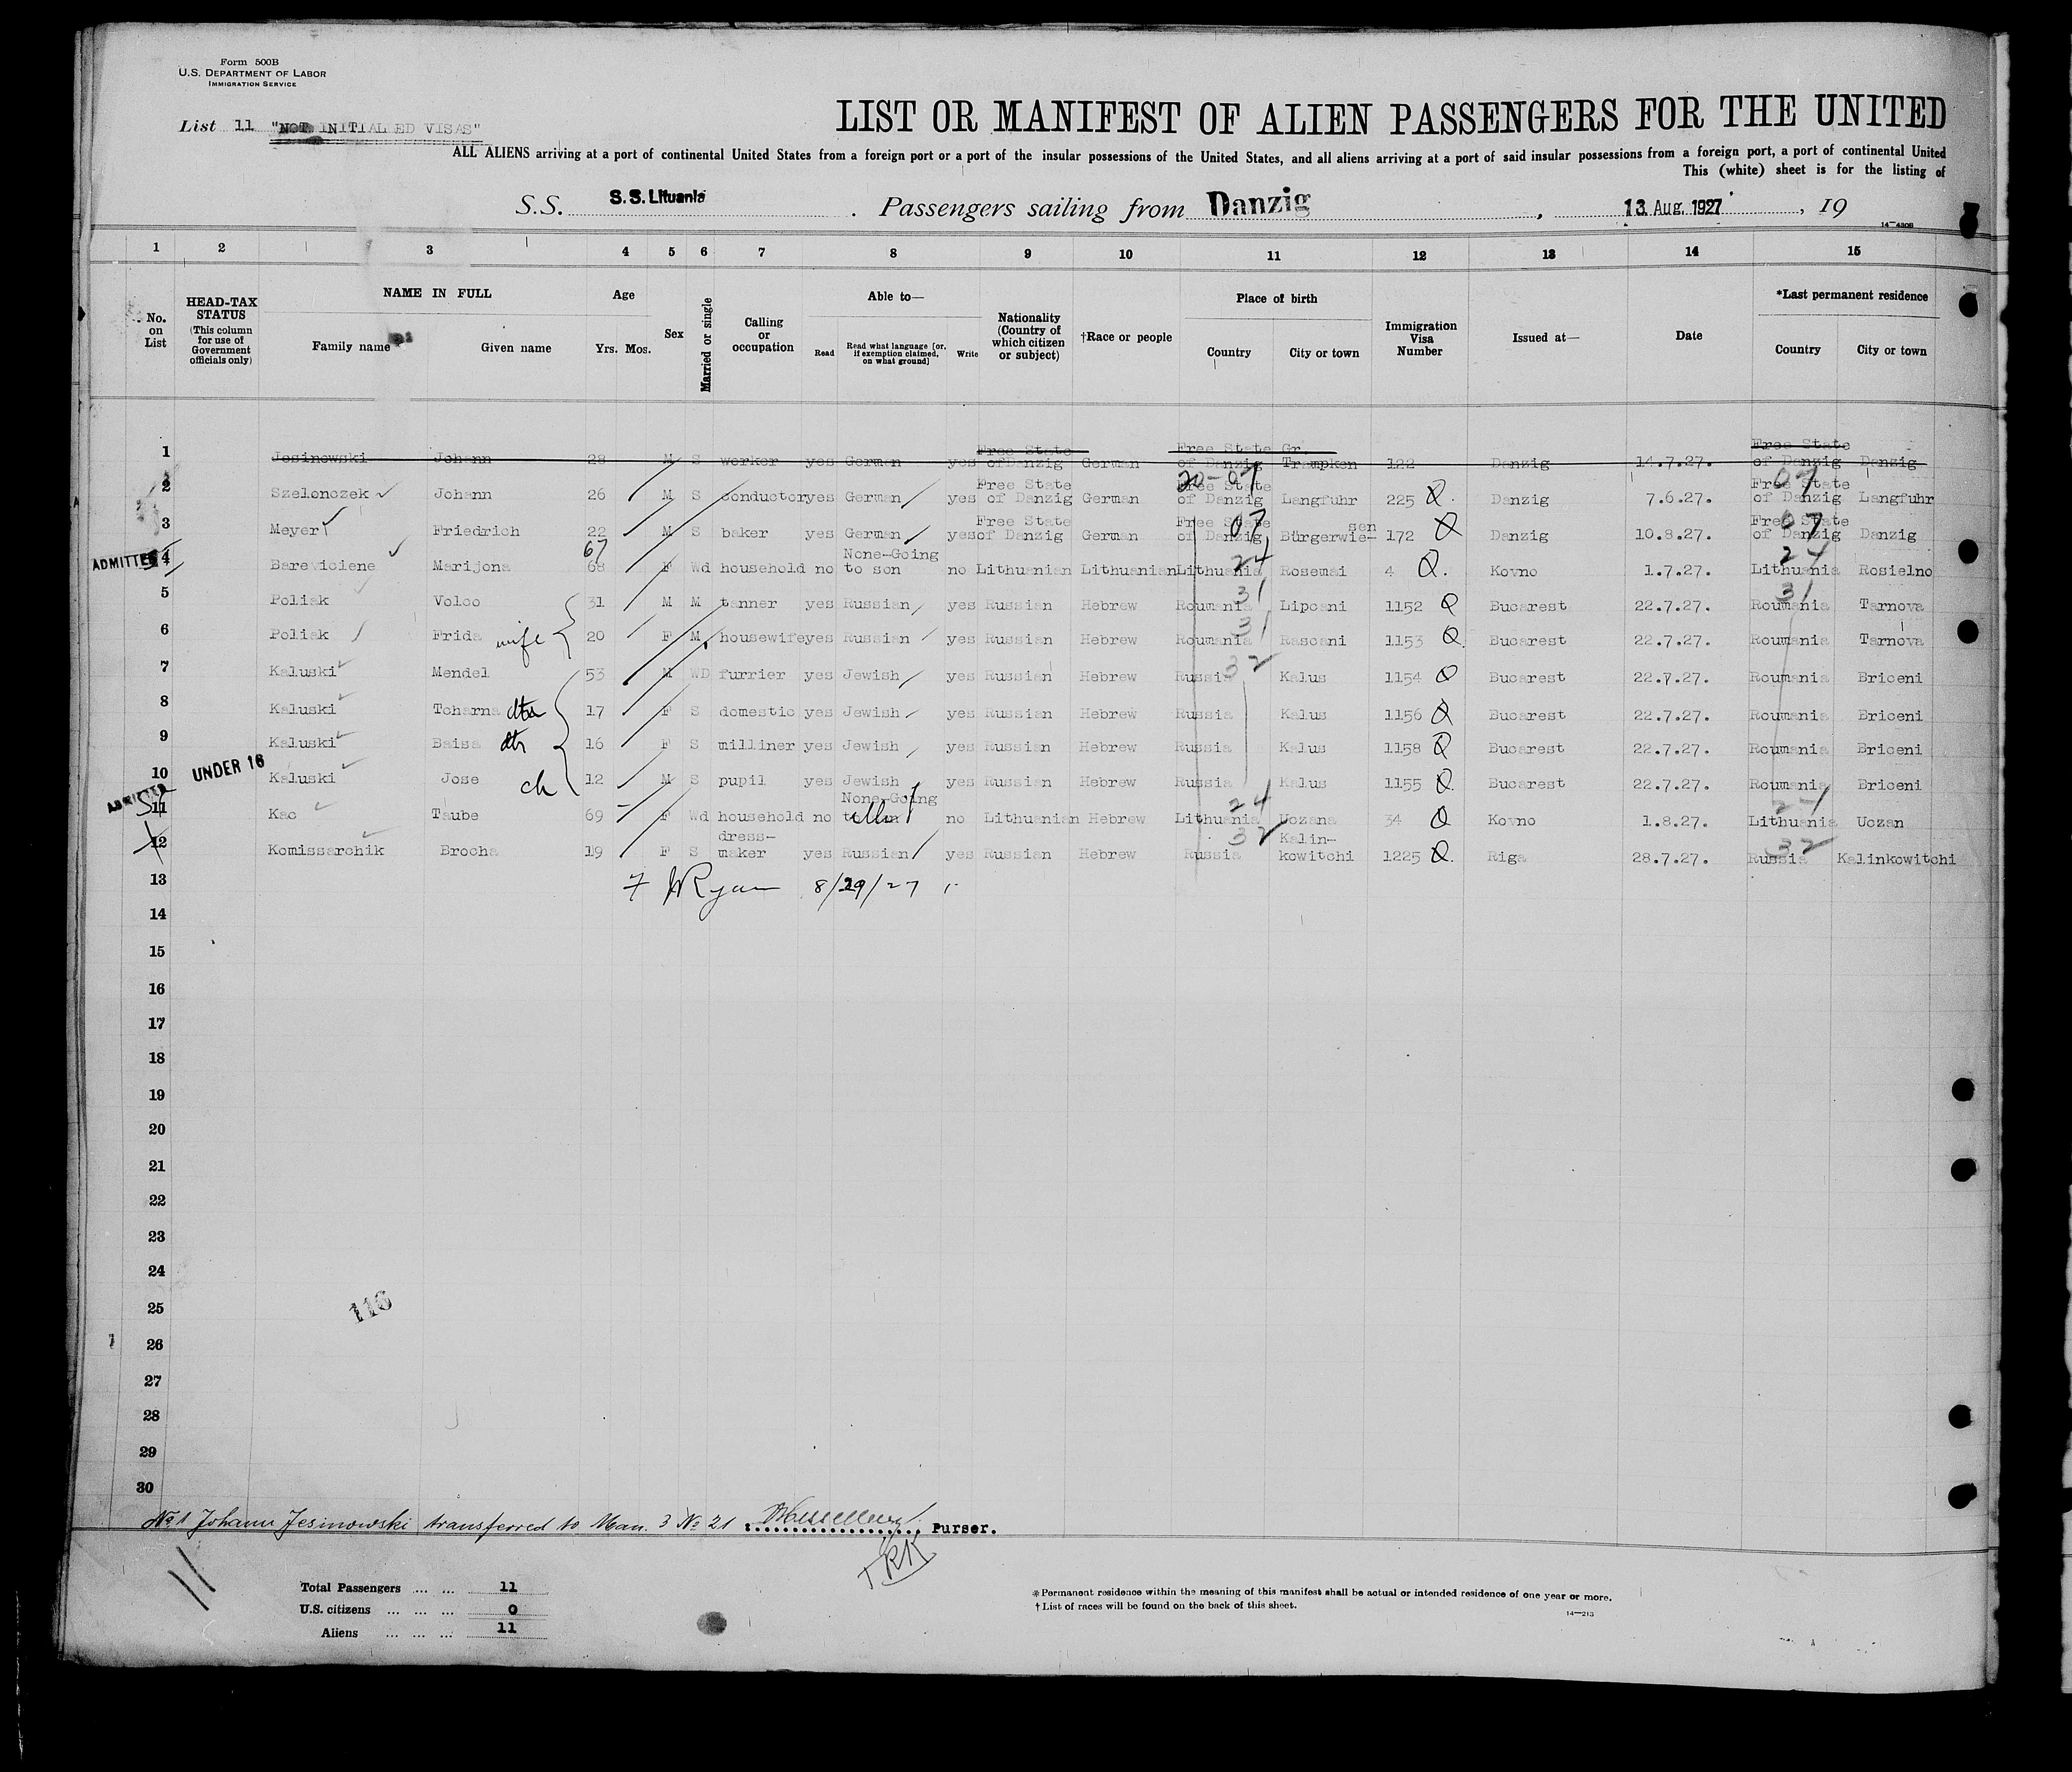 Form 500B
U.S. DEPARTMENT OF LABOR
IMMIGRATION SERVICE
List 11 "NOT INITIALED VISAS"
LIST OR MANIFEST OF ALIEN PASSENGERS FOR THE UNITED
ALL ALIENS arriving at a port of continental United States from a foreign port or a port of the insular possessions of the United States, and all aliens arriving at a port of said insular possessions from a foreign port, a port of continental United
This (white) sheet is for the listing of
S.S. S.S. Lituania . Passengers sailing from Danzig , 13 Aug. 1927 , 19
14—4206
1 2 3 4 5 6 7 8 9 10 11 12 13 14 15
No. on List
HEAD-TAX STATUS (This column for use of Government officials only)
NAME IN FULL
Family name Given name
Age
Yrs. Mos.
Sex
Married or single
Calling or occupation
Able to—
Read Read what language [or, if exemption claimed, on what ground] Write
Nationality (Country of which citizen or subject)
†Race or people
Place of birth
Country City or town
Immigration Visa Number
Issued at—
Date
*Last permanent residence
Country City or town
1 Jesinowski Johann 28 M S worker yes German yes Free State of Danzig German Free State of Danzig Gr. Trampken 122 Danzig 14.7.27. Free State of Danzig Danzig
20-07 07
2 Szelonczek Johann 26 M S conductor yes German yes Free State of Danzig German Free State of Danzig Langfuhr 225 Danzig 7.6.27. Free State of Danzig Langfuhr
07 07
3 Meyer Friedrich 22 M S baker yes German yes Free State of Danzig German Free State of Danzig Bürgerwie-sen 172 Danzig 10.8.27. Free State of Danzig Danzig
67 24 24
ADMITTED 4 Bareviciene Marijona 68 F Wd household no None-Going to son no Lithuanian Lithuanian Lithuania Rosemai 4 Kovno 1.7.27. Lithuania Rosielno
31 31
5 Poliak Volco 31 M M tanner yes Russian yes Russian Hebrew Roumania Lipcani 1152 Bucarest 22.7.27. Roumania Tarnova
31
6 Poliak Frida wife 20 F M. housewife yes Russian yes Russian Hebrew Roumania Rascani 1153 Bucarest 22.7.27. Roumania Tarnova
32
7 Kaluski Mendel 53 M WD furrier yes Jewish yes Russian Hebrew Russia Kalus 1154 Bucarest 22.7.27. Roumania Briceni
8 Kaluski Tcharna dtr 17 F S domestic yes Jewish yes Russian Hebrew Russia Kalus 1156 Bucarest 22.7.27. Roumania Briceni
9 Kaluski Baisa dtr 16 F S milliner yes Jewish yes Russian Hebrew Russia Kalus 1158 Bucarest 22.7.27. Roumania Briceni
10 UNDER 16 Kaluski Jose ch 12 M S pupil yes Jewish yes Russian Hebrew Russia Kalus 1155 Bucarest 22.7.27. Roumania Briceni
24 24
ADMITTED 11 Kac Taube 69 F Wd household no None-Going no Lithuanian Hebrew Lithuania Uczana 34 Kovno 1.8.27. Lithuania Uczan
32 32
12 Komissarchik Brocha 19 F S dress-maker yes Russian yes Russian Hebrew Russia Kalin-kowitchi 1225 Riga 28.7.27. Russia Kalinkowitchi
13 Ryan 8/29/27
14
15
16
17
18
19
20
21
22
23
24
25
116
26
27
28
29
30
No 1 Johann Jesinowski transferred to Man. 3 No 21 Purser.
11
Total Passengers ... ... 11
U.S. citizens ... ... ... 0
Aliens ... ... ... 11
*Permanent residence within the meaning of this manifest shall be actual or intended residence of one year or more.
†List of races will be found on the back of this sheet.
14—213